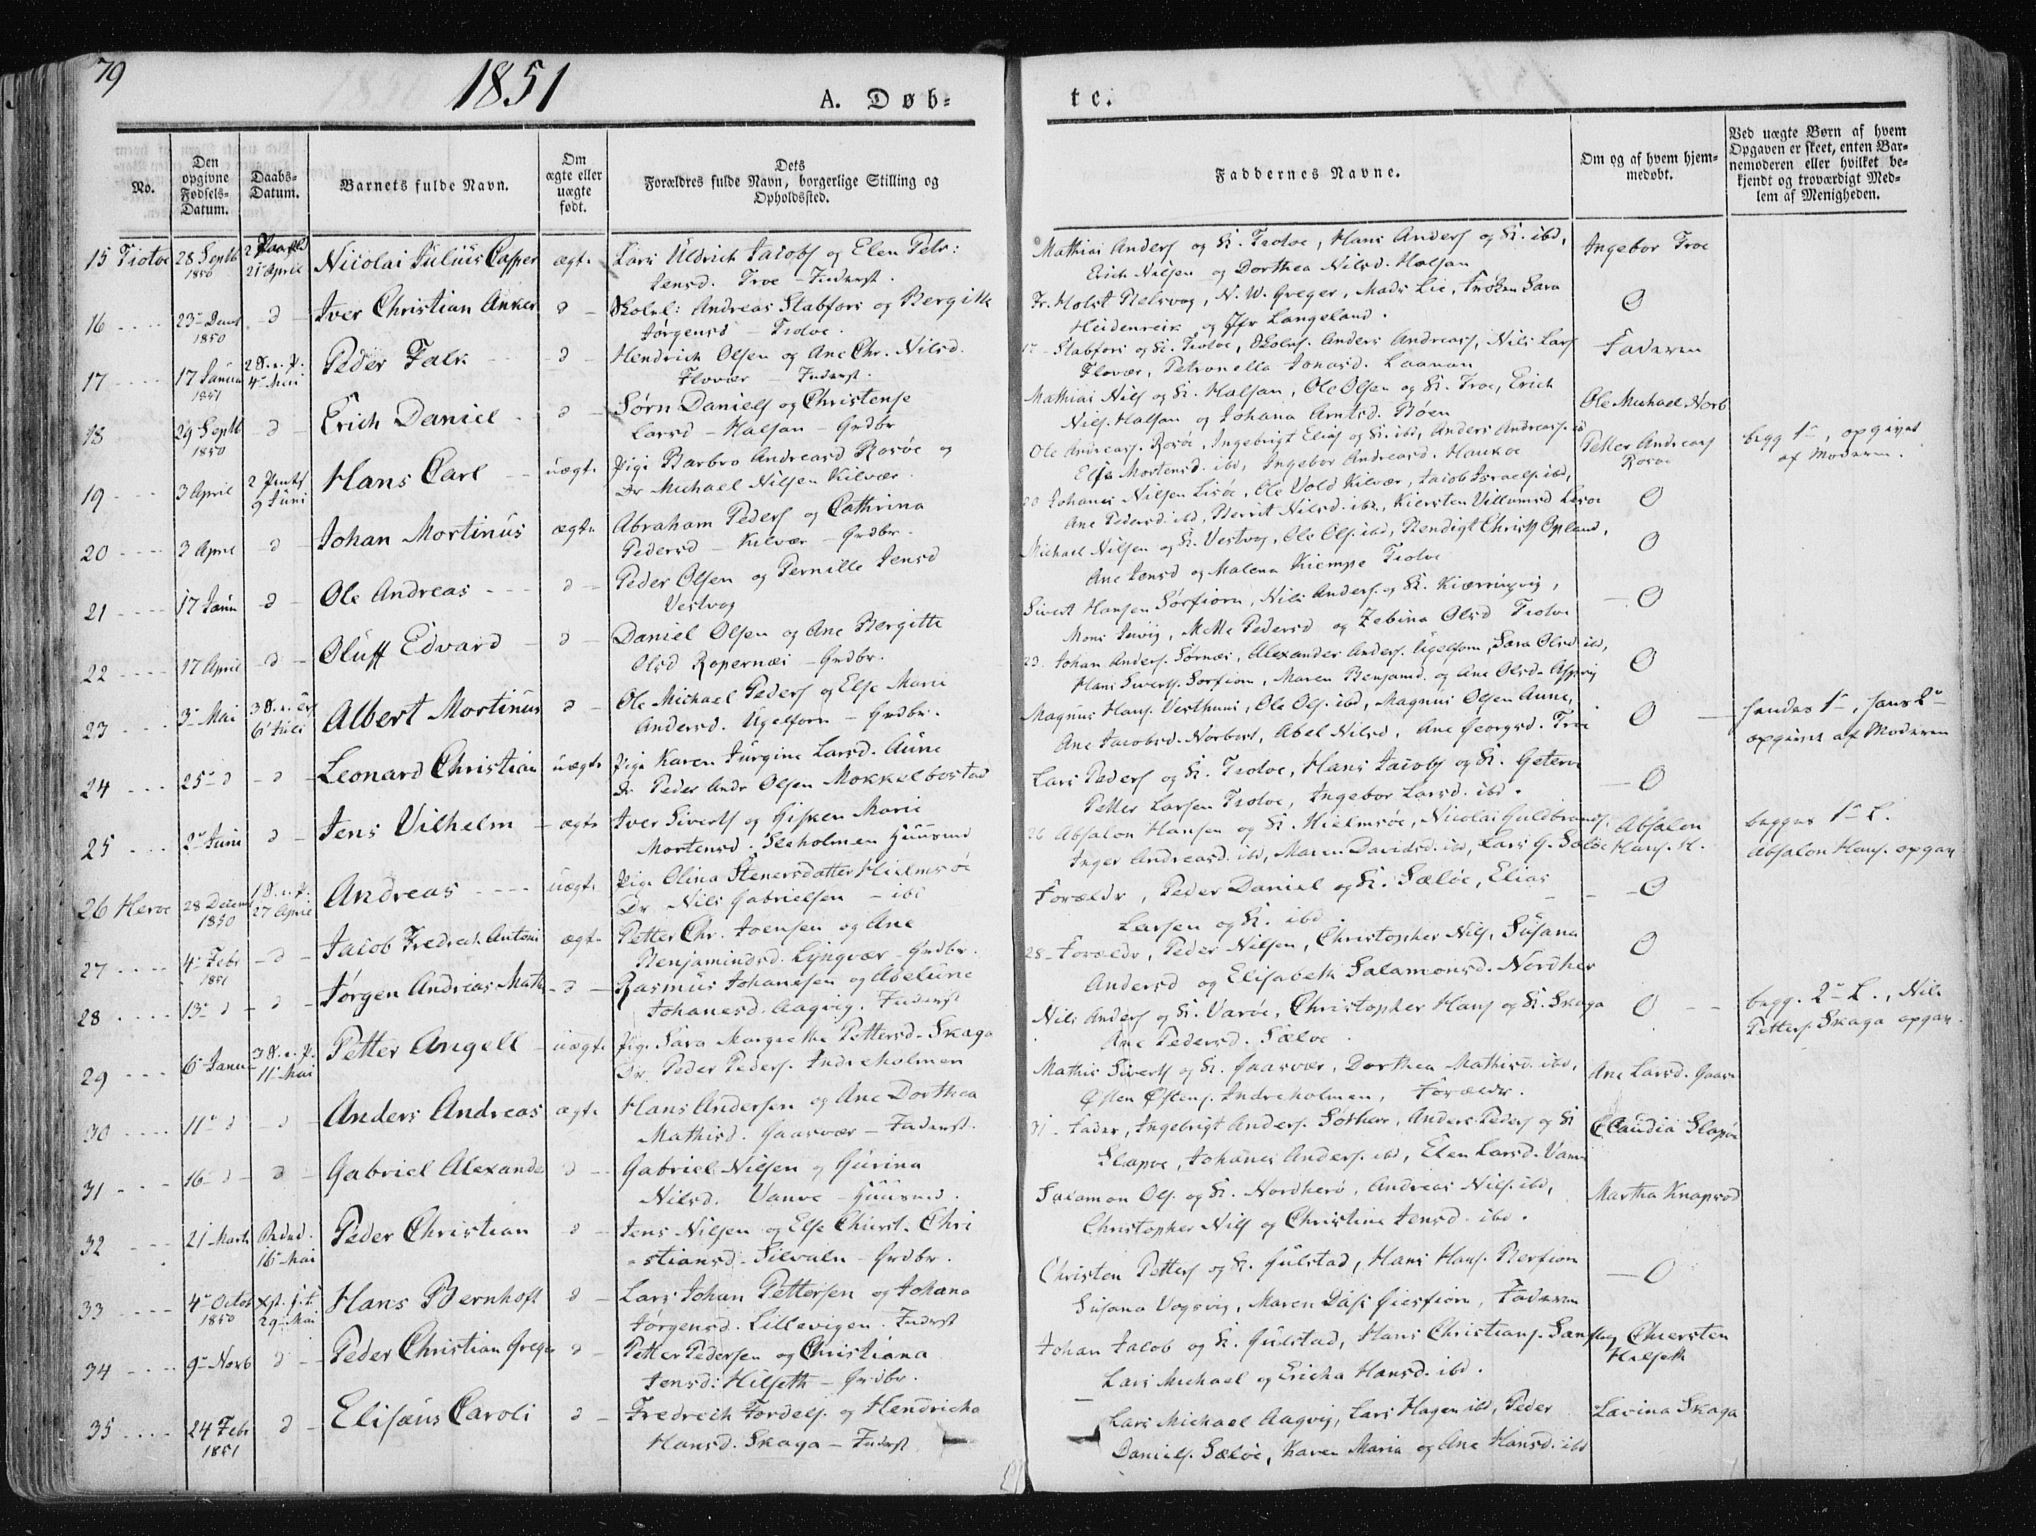 79
1851
A. Døb-
te.
No.
Den opgivne Fødsels-Datum.
Daabs-Datum.
Barnets fulde Navn.
Om ægte eller uægte født.
Dets Forældres fulde Navn, borgerlige Stilling og Opholdssted.
Faddernes Navne.
Om og af hvem hjem-medøbt.
Ved uægte Børn af hvem Opgaven er skeet, enten Bar-nemoderen eller hvilket be-kjendt og troværdigt Med-lem af Menigheden.
15 Tiøtøe 28 Septb 1850 21 April Nicolai Julius Casper ægte Lars Uldrich Jacobs og Elen Petr:
Jensd. Troe - Inderst.
Mathias Anders og K. Tiøtøe, Hans Anders og K. ibd, Ingebor Troe
Erich Nilsen og Dorthea Nilsd. Halsan
16 23 1850 d Iver Christian Anker d Skolel: Andreas Stabfors og Bergitte
Jørgensd - Tiøtøe.
Fr. Holst Belsvog, N. W. Greger, Mads Lie, Frøken Sara O
Heidenreik og Jfr Langeland.
17 17 Janua 1851 4 Mai Peder Falk d Hendrich Olsen og Ane Chr. Nilsd.
Flovær - Inderst.
17 - Stabfors og K. Tiøtøe, Anders Andreas, Nils Lars Faderen
Flovær, Petronella Jonasd. Laanan
18 29 Septb 1850 d Erich Daniel d Sørn Daniels og Christense
Larsd - Halsan - Grdbr
Mathias Nils og K. Halsan, Ole Olsen og K. Troe, Erich Ole Michael Norb
Nils. Halsan og Johana Arntsd. Bøen
19 3 April 2 Pents 9 Juni Hans Carl uægte Pige Barbro Andreasd Rosøe og
Dr Michael Nilsen Kilvær
Ole Andreas. Rosøe, Ingebrigt Elias og K. ibd, Anders Andreas. ib Petter Andreas Rosøe
begg 1, opgivet af Moderen.
Mortensd. ibd, Ingebor Andreasd. Haukøe
20 3 April d Johan Mortinus ægte Abraham Peders og Cathrina
Pedersd - Kilvær - Grdbr.
20 Johanes Nilsen Lisøe, Ole Vold Kilvær, Jacob Israels. ibd, O
Ane Pedersd. ibd, Berrit Nilsd. ibd, Kiersten Villumsd Lisøe
21 17 Janu d Ole Andreas d Peder Olsen og Pernille Jensd
Vestvog
Michael Nilsen og K. Vestvog, Ole Ols. ibd, Bendigt Christ. Opland, O
Ane Jensd og Malena Kiempe Tiøtøe
22 17 April d Oluff Edvard d Daniel Olsen og Ane Bergitte
Olsd Ropernæs - Grdbr.
Sivert Hansen Sørfiorn, Nils Anders. og K. Kiærringvig, O
Mons, Mette Pedersd og Zebina Olsd Tiøtøe
23 3 Mai 6 Juli Albert Mortinus d Ole Michael Peders og Else Marie
Andersd. Ugelforn - Grdbr.
23. Johan Anders. Sørnæs, Alexander Anders. Ugelforn, Sara Olsd. ibd, O
Hans Siverts. Sørfiorn, Maren Benjamd. og Ane Olsd.
24 25 d d Leonard Christian uægte Pige Karen Jurgine Larsd. Aune
Dr Peder Andr Olsen Mokkelbostad
Magnus Hans. Vesthuus, Ole Ols. ibd, Magnus Olsen Aune, O hendes 1, hans 2
Ane Jacobsd. Norbost, Abel Nilsd, Ane Georgsd. Troe opgivet af Moderen
25 2 Juni d Jens Vilhelm ægte Iver Siverts og Gisken Marie
Mortensd. Seeholmen Huusmd
Lars Peders og K. Tiøtøe, Hans Jacobs og K. O
Petter Larsen Tiøtøe, Ingebor Larsd. ibd.
26 Herøe 28 Decem 1850 27 April Andreas uægte Pige Olina Stenersdatter Hielmsøe
Dr Nils Gabrielsen - ibd
26 Absalon Hansen og K. Hielmsøe, Nicolai Guldbrands. Absalon Hans. H.
begges 1 L.
Absalon Hans. opgav
Inger Andreasd. ibd, Maren Davidsd. ibd, Lars G. Sæløe
27 4 Febr 1851 d Jacob Fredrech Antoni ægte Petter Chr. Joensen og Ane
Benjaminsd. Lyngvær - Grdbr.
Forældr, Peder Daniel og K. Sæløe, Elias O
Larsen og K. ibd
28 13 d d Jørgen Andreas Math d Rasmus Johansen og Abelune
Johanesd. Aagvig. Inderst
28 - Forældr, Peder Nilsen, Christopher Nils, Susana O
Andersd og Elisabeth Salamonsd. Nordher
29 6 Janu 11 Mai Petter Angell uægte Pige Sara Margrethe Pettersd. Skaga
Dr Peder Peders. Indreholmen
Nils Anders og K. Varøe, Christopher Hans og K. Skaga O begg. 2 L., Nils
Ane Pedersd. Sæløe Petters. Skaga opgav.
30 11 d d Anders Andreas ægte Hans Andersen og Ane Dorthea
Mathisd. Gaasvær - Inderst.
Mathis Siverts og K. Gaasvær, Dorthea Mathisd. ibd, Ane Larsd. Gaas
Østen Østens. Indreholmen, Forældr.
31 16 d d Gabriel Alexander d Gabriel Nilsen og Gurina
Nilsd. Vanvøe - Huusmd.
31 - Fader, Ingebrigt Anders. Sørherr, Anders Peders og K Claudia Slapøe
Slapøe, Johanes Anders. ibd, Elen Larsd. Vanv
32 21 Marts Beded. 16 Mai Peder Christian d Jens Nilsen og Else Christ. Chri
stiansd. Silvaln - Grdbr.
Salamon Ols. og K. Nordherø, Andreas Nils. ibd, Martha Knapsød
Christopher Nils og Christine Jensd. ibd.
33 4 Octob 1850 29 Mai Hans Bernhoft d Lars Johan Pettersen og Johana
Jørgensd. Lillevigen. Inderst
Christen Petters og K. Gulstad, Hans Hans. Berfiorn O
Susana Vogsvig, Maren, Faderen
34 9 Novb d Peder Christian Greger d Petter Pedersen og Christiana
Jensd: Hilseth - Grdbr.
Johan Jacob og K. Gulstad, Hans Christians. Chiersten Hilseth
Lars Michael og Ericha Hansd. ibd.
35 24 Febr 1851 d Elisæus Caroli d Fredrech Tordels. og Hendricha
Hansd. Skaga - Inderst
Lars Michael Aagvig, Lars Hagen ibd, Peder Lavina Skaga
Daniels. Sæløe, Karen Maria og Ane Hansd. ibd